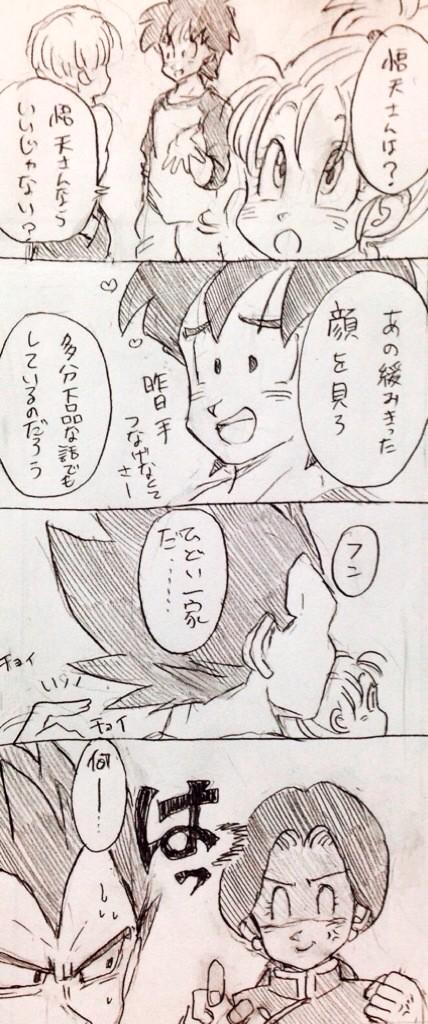 悟天さんは？
悟天さんなら
いいじゃない？
あの緩みきった
顔を見ろ
昨日手
つなげなくて
さー
多分下品な話でも
しているのだろう
フン
ひどい一家
だ………
チョイ
チョイ
何ー…
はっ